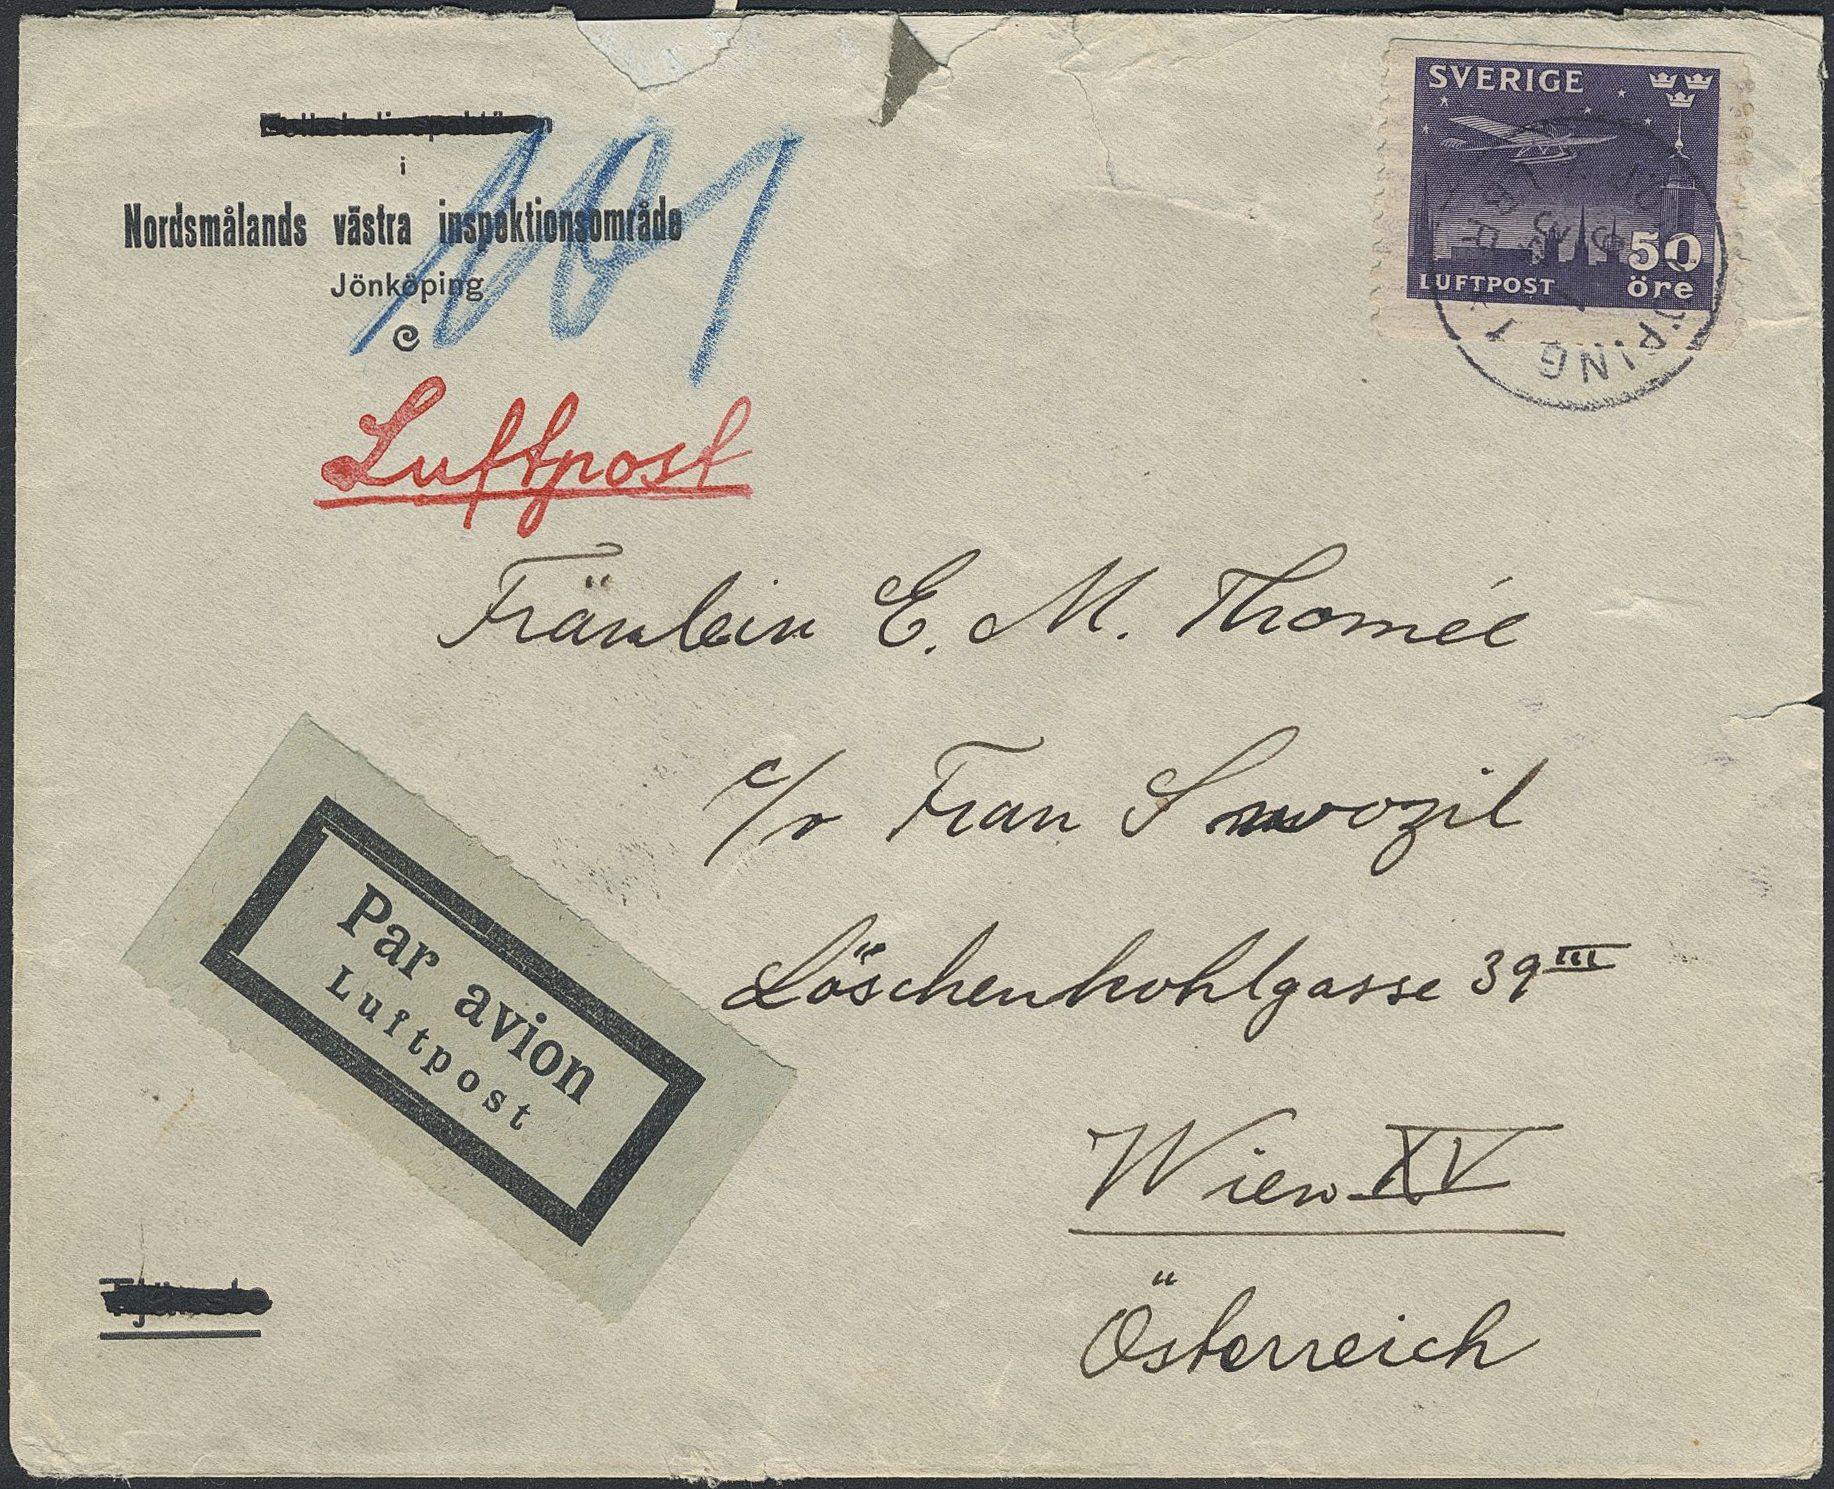 i
Nordsmålands västra inspektionsområde
Jönköping
SVERIGE
50
LUFTPOST öre
Luftpost
Fräulein E. M. Thomée
c/o Frau Swozil
Löschenkohlgasse 39 III
Par avion
Luftpost
Wien XV
Österreich